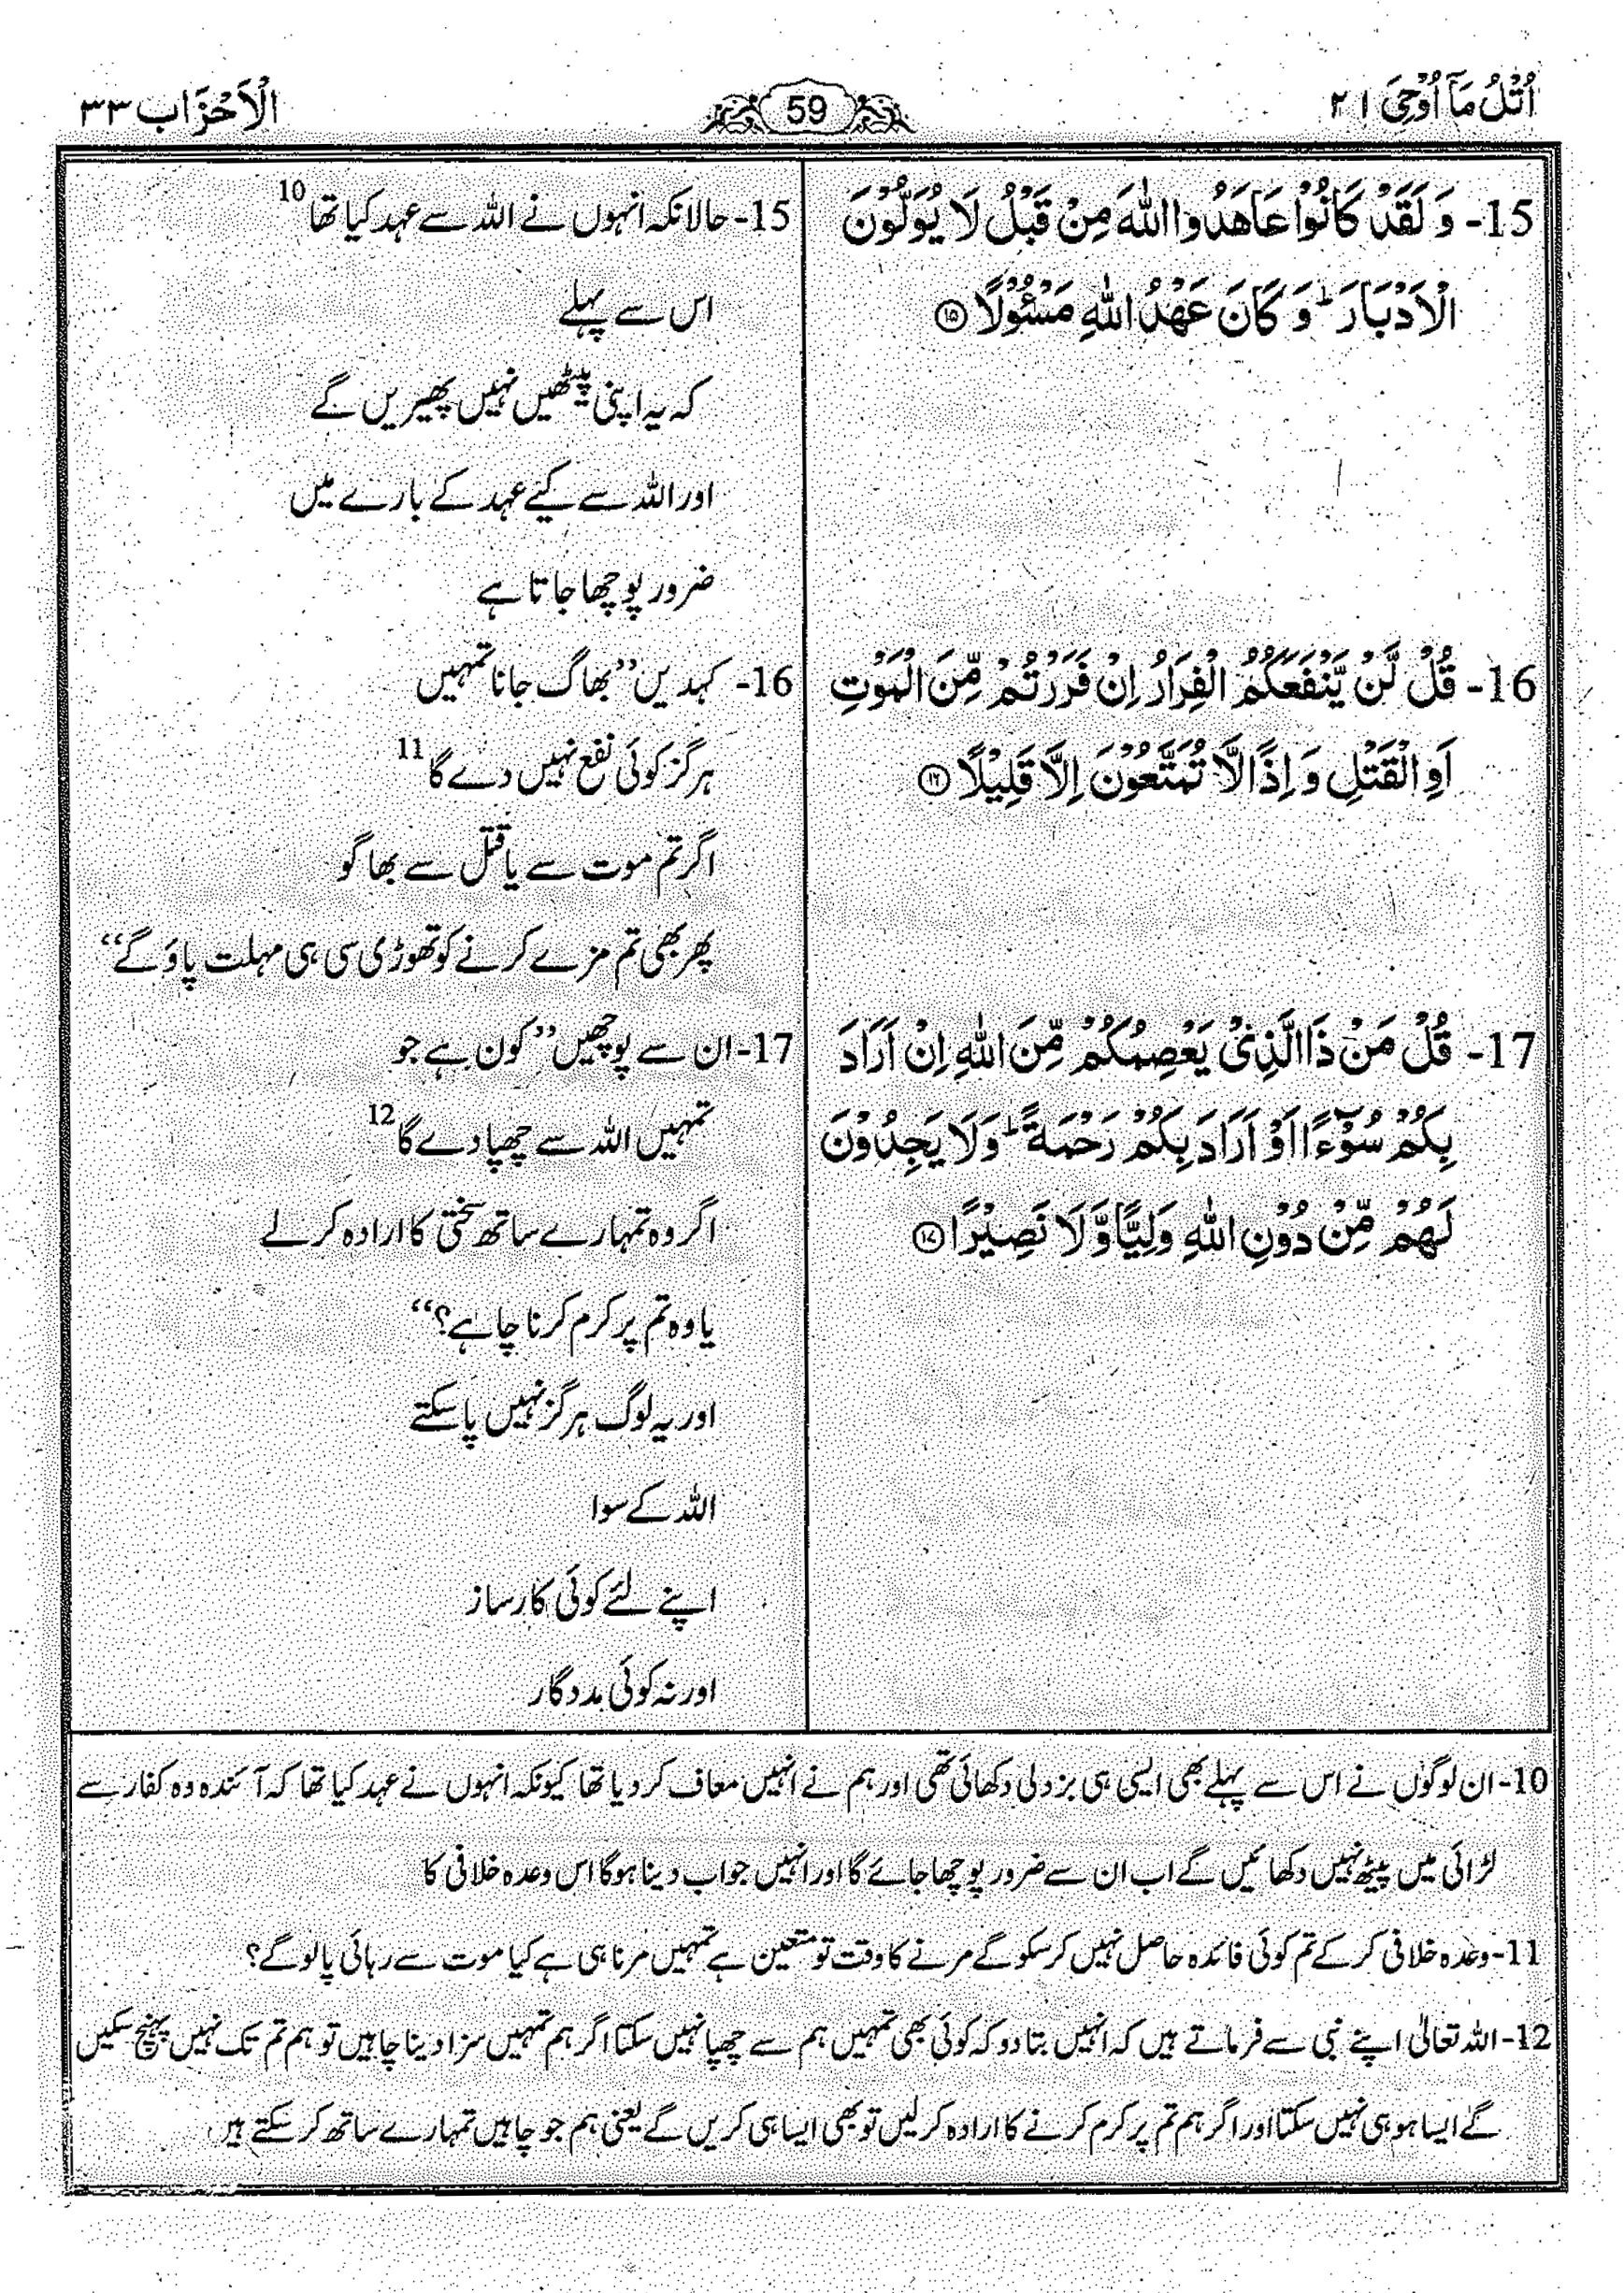 اُتْلُ مَآ اُوْحِیَ ۲۱
59
الْاَحْزَاب ۳۳
15- وَ لَقَدْ كَانُوْا عَاهَدُوا اللّٰهَ مِنْ قَبْلُ لَا یُوَلُّوْنَ
الْاَدْبَارَ ؕ وَ كَانَ عَهْدُ اللّٰهِ مَسْـُٔوْلًا ۝۱۵
16- قُلْ لَّنْ یَّنْفَعَكُمُ الْفِرَارُ اِنْ فَرَرْتُمْ مِّنَ الْمَوْتِ
اَوِ الْقَتْلِ وَ اِذًا لَّا تُمَتَّعُوْنَ اِلَّا قَلِیْلًا ۝۱۶
17- قُلْ مَنْ ذَا الَّذِیْ یَعْصِمُكُمْ مِّنَ اللّٰهِ اِنْ اَرَادَ
بِكُمْ سُوْٓءًا اَوْ اَرَادَ بِكُمْ رَحْمَةً ؕ وَ لَا یَجِدُوْنَ
لَهُمْ مِّنْ دُوْنِ اللّٰهِ وَلِیًّا وَّ لَا نَصِیْرًا ۝۱۷
15- حالانکہ انہوں نے اللہ سے عہد کیا تھا 10
اس سے پہلے
کہ یہ اپنی پیٹھیں نہیں پھیریں گے
اور اللہ سے کیے عہد کے بارے میں
ضرور پوچھا جاتا ہے
16- کہدیں ”بھاگ جانا تمہیں
ہرگز کوئی نفع نہیں دے گا 11
اگر تم موت سے یا قتل سے بھاگو
پھر بھی تم مزے کرنے کو تھوڑی سی ہی مہلت پاؤ گے“
17- ان سے پوچھیں ”کون ہے جو
تمہیں اللہ سے چھپا دے گا 12
اگر وہ تمہارے ساتھ سختی کا ارادہ کر لے
یا وہ تم پر کرم کرنا چاہے؟“
اور یہ لوگ ہرگز نہیں پا سکتے
اللہ کے سوا
اپنے لئے کوئی کارساز
اور نہ کوئی مددگار
10- ان لوگوں نے اس سے پہلے بھی ایسی ہی بزدلی دکھائی تھی اور ہم نے انہیں معاف کر دیا تھا کیونکہ انہوں نے عہد کیا تھا کہ آئندہ وہ کفار سے
لڑائی میں پیٹھ نہیں دکھائیں گے اب ان سے ضرور پوچھا جائے گا اور انہیں جواب دینا ہوگا اس وعدہ خلافی کا
11- وعدہ خلافی کر کے تم کوئی فائدہ حاصل نہیں کر سکو گے مرنے کا وقت تو متعین ہے تمہیں مرنا ہی ہے کیا موت سے رہائی پالو گے؟
12- اللہ تعالیٰ اپنے نبی سے فرماتے ہیں کہ انہیں بتا دو کہ کوئی بھی تمہیں ہم سے چھپا نہیں سکتا اگر ہم تمہیں سزا دینا چاہیں تو ہم تم تک نہیں پہنچ سکیں
گے ایسا ہو ہی نہیں سکتا اور اگر ہم تم پر کرم کرنے کا ارادہ کرلیں تو بھی ایسا ہی کریں گے یعنی ہم جو چاہیں تمہارے ساتھ کر سکتے ہیں